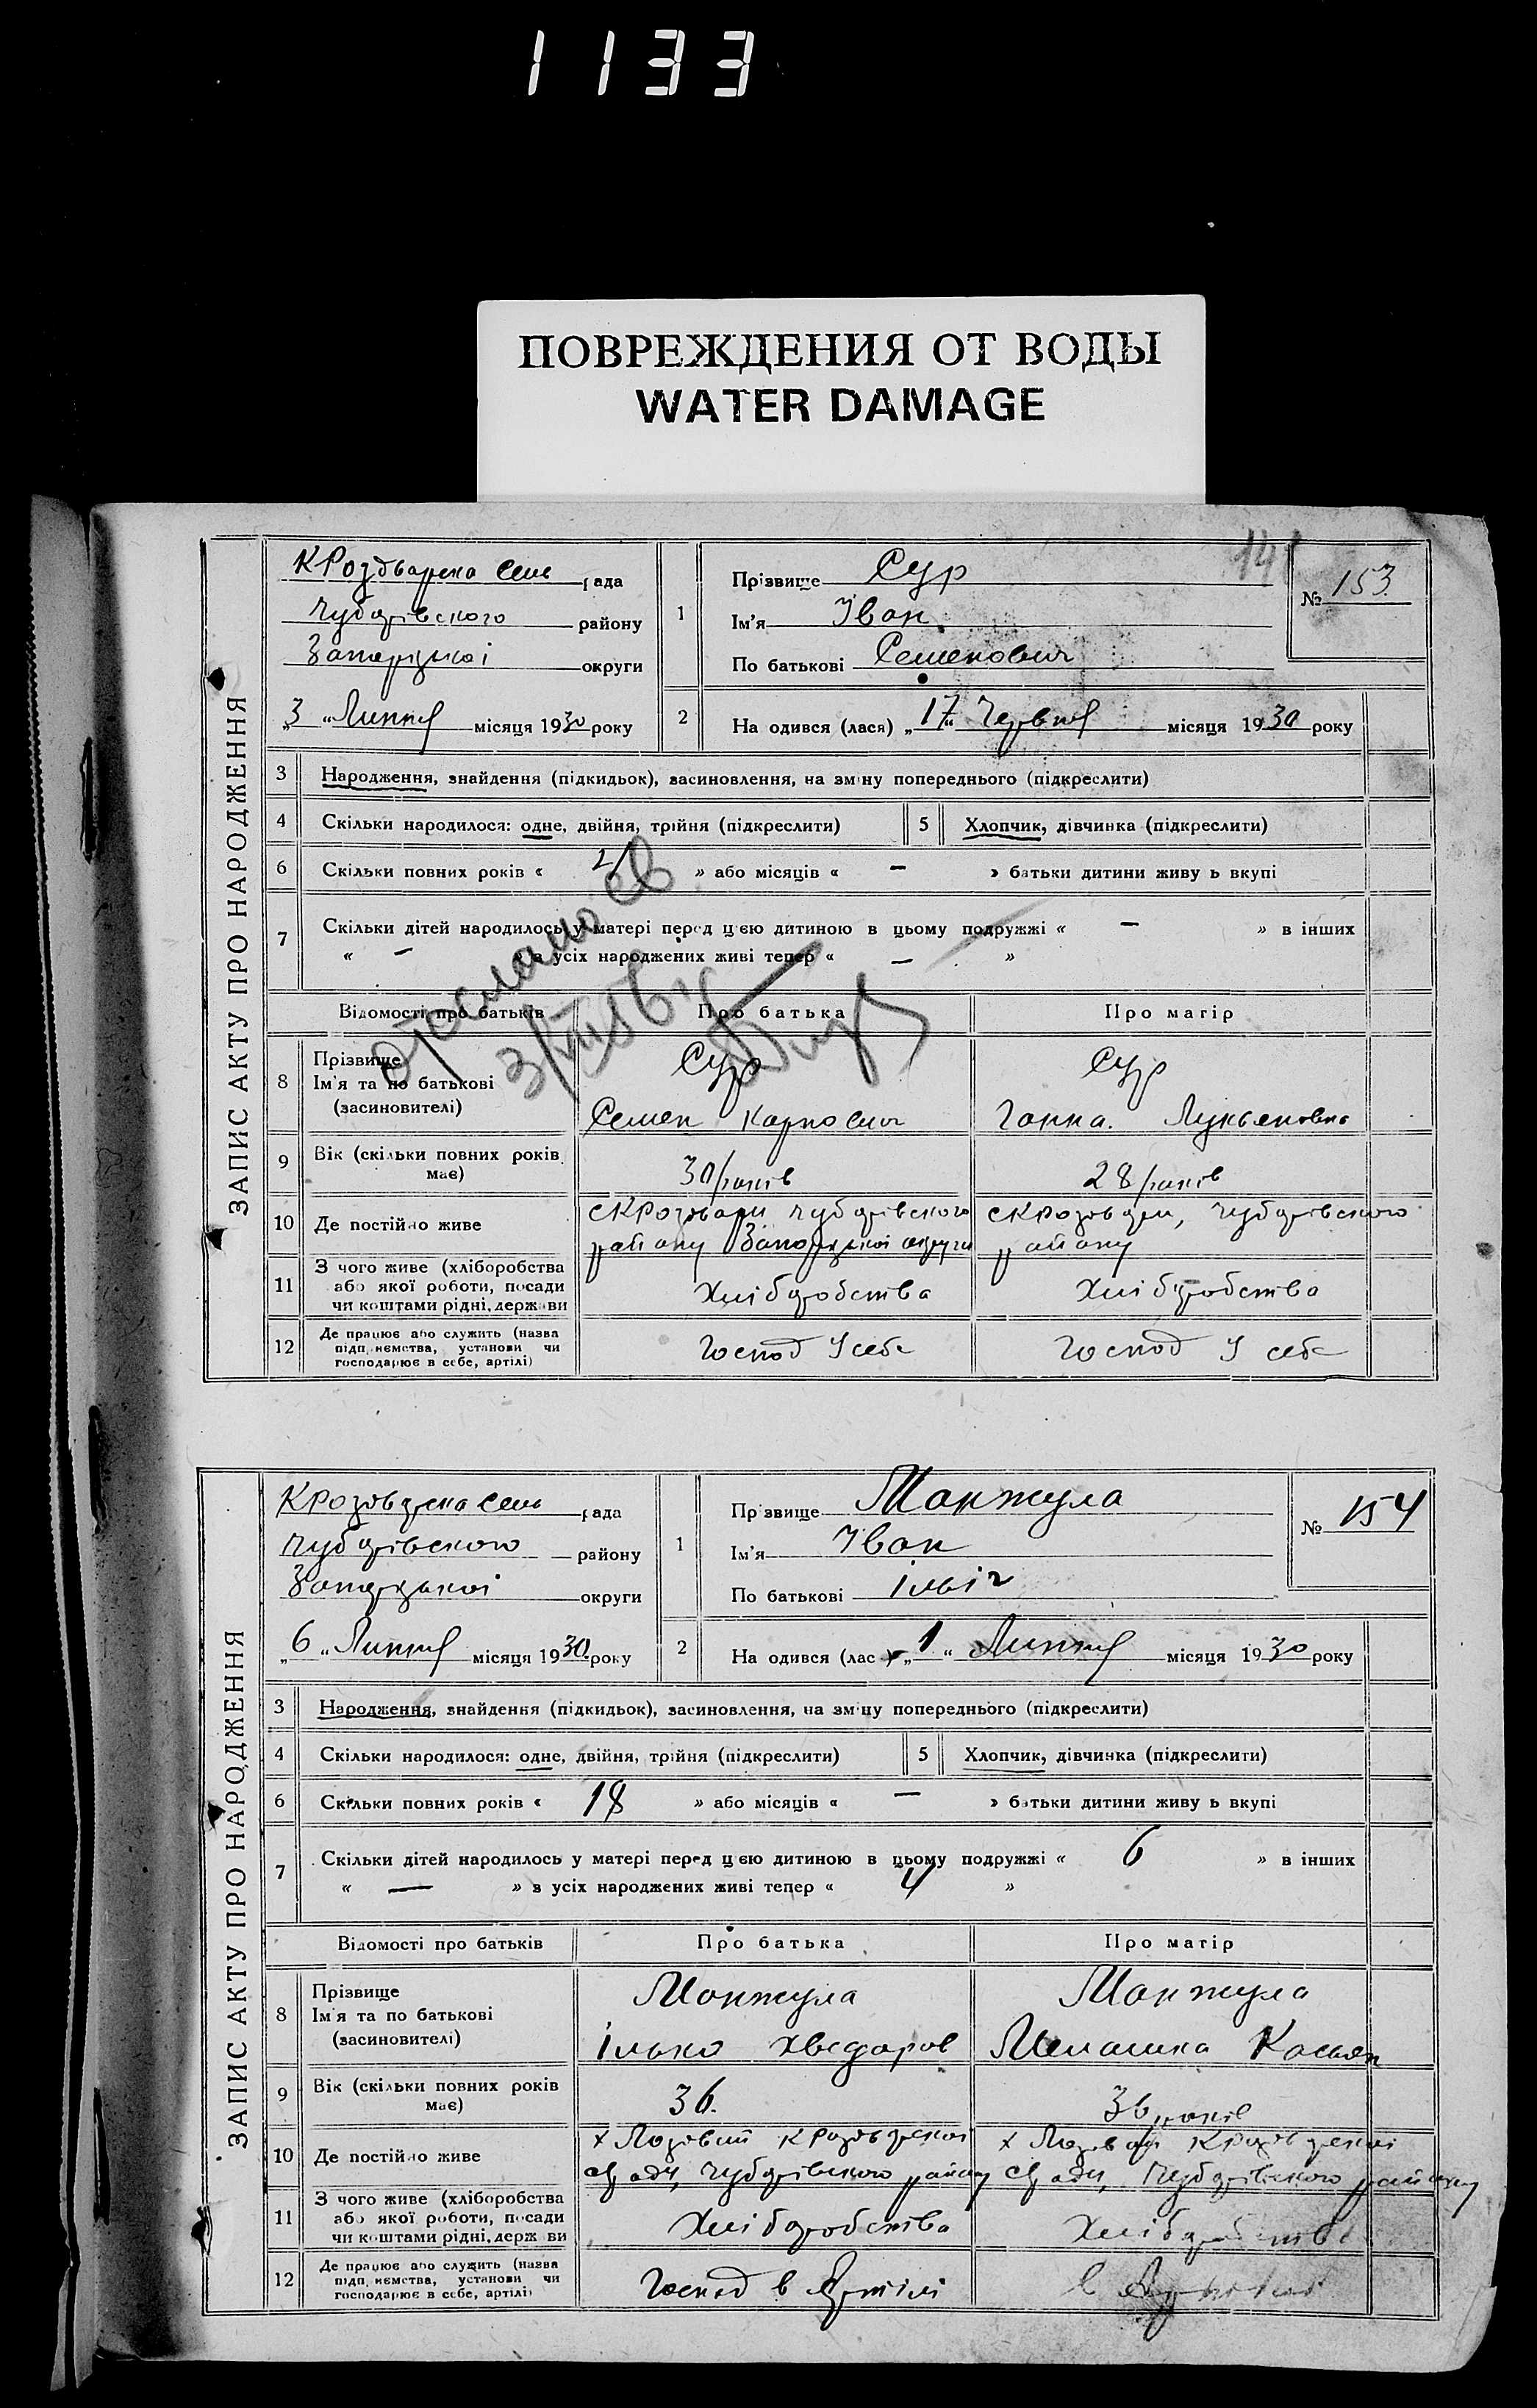 1133
ПОВРЕЖДЕНИЯ ОТ ВОДЫ
WATER DAMAGE
ЗАПИС АКТУ ПРО НАРОДЖЕННЯ
рада
Чубарівського району
Запорізької округи
„3“ Липня місяця 1930 року
1
Прізвище Сур
Ім'я Іван
По батькові Семенович
№ 153
2 На одився (лася) „17“ Червня місяця 1930 року
3 Народження, знайдення (підкидьок), засиновлення, на зміну попереднього (підкреслити)
4 Скільки народилося: одне, двійня, трійня (підкреслити)
5 Хлопчик, дівчинка (підкреслити)
6 Скільки повних років « » або місяців « — » батьки дитини живу ь вкупі
7 Скільки дітей народилось у матері перед цією дитиною в цьому подружжі « — » в інших
« — » з усіх народжених живі тепер « — »
Відомості про батьків Про батька Про матір
8 Прізвище
Ім'я та по батькові
(засиновителі)
Сур
Семен Карпович
Сур
Ганна Лукьяновна
9 Вік (скільки повних років має)
30 років
28 років
10 Де постійно живе
Чубарівського
району Запорізької округи
Чубарівського
району
11 З чого живе (хліборобства
або якої роботи, посади
чи коштами рідні, держави
Хліборобства
Хліборобства
12 Де працює або служить (назва
підп иємства, установи чи
господарює в себе, артілі)
Господ У себе
Господ У себе
ЗАПИС АКТУ ПРО НАРОДЖЕННЯ
рада
Чубарівського району
Запорізької округи
„6“ Липня місяця 1930 року
1
Пр звище Манжула
Ім'я Іван
По батькові Ілліч
№ 154
2 На одився (лас „1“ Липня місяця 1930 року
3 Народження, знайдення (підкидьок), засиновлення, на зміну попереднього (підкреслити)
4 Скільки народилося: одне, двійня, трійня (підкреслити)
5 Хлопчик, дівчинка (підкреслити)
6 Скільки повних років « 18 » або місяців « — » батьки дитини живу ь вкупі
7 Скільки дітей народилось у матері перед цією дитиною в цьому подружжі « 6 » в інших
« — » з усіх народжених живі тепер « 4 »
Відомості про батьків Про батька Про матір
8 Прізвище
Ім'я та по батькові
(засиновителі)
Манжула
Ілько Хведоров
Манжула
Мелашка Касьян
9 Вік (скільки повних років має)
36.
36 років
10 Де постійно живе
х Лозовий
Чубарівського району
Чубарівського району
11 З чого живе (хліборобства
або якої роботи, посади
чи коштами рідні, держ ви
Хліборобства
12 Де працює або служить (назва
підп иємства, установи чи
господарює в себе, артілі)
Господ в Артілі
в Артілі